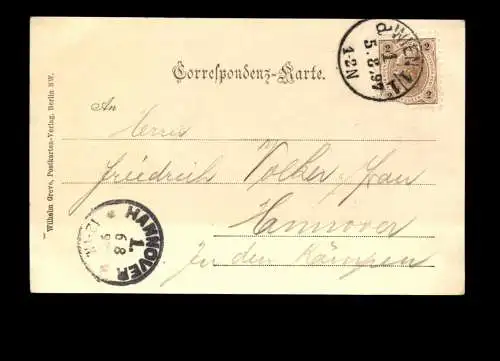 Correspondenz-Karte.
An
Herrn
Friedrich Volker
Hannover
In den Kämpen
Wilhelm Greve, Postkarten-Verlag, Berlin SW.
WIEN 1/1
d
1
5.8.97
1-2N
2 2
2 2
HANNOVER
1.
6.8